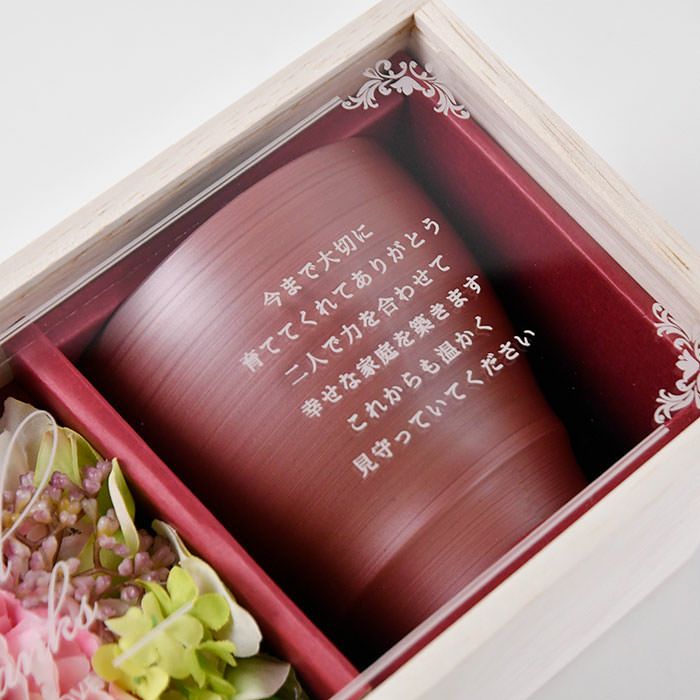 今まで大切に
育ててくれてありがとう
二人で力を合わせて
幸せな家庭を築きます
これからも温かく
見守っていてください